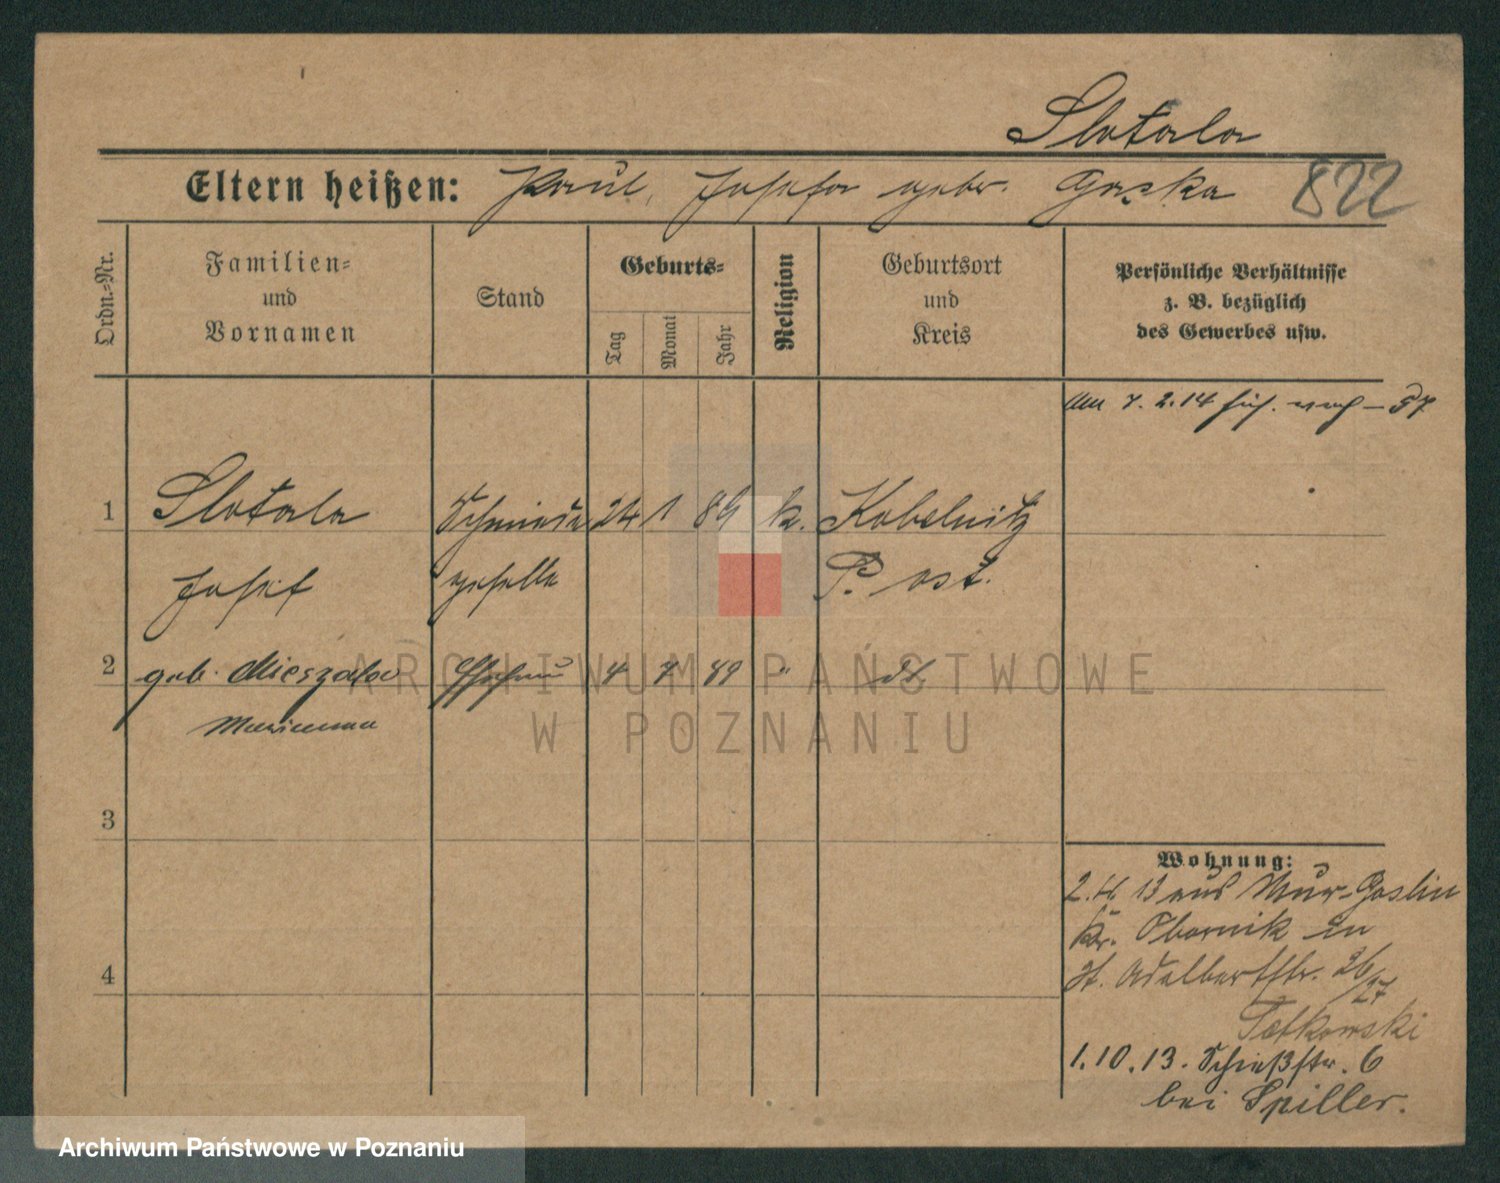 Slotala
Eltern heißen: Paul, Josefa gebr. Gąska 822
Ordn.-Nr.
Familien-
und
Vornamen
Stand
Geburts-
Tag
Monat
Jahr
Religion
Geburtsort
und
Kreis
Persönliche Verhältnisse
z. B. bezüglich
des Gewerbes usw.
7. 2. 14 57
1 Slotala Schmiede 24 1 89 k. Kobelnitz
Josef geselle P. ost.
2 geb. Mieszala Ehefrau 4 7 89 " dt
Marianna
3
4
Wohnung:
2. 4. 13 aus Mur-Goslin
Kr. Obornik in
St. Adalbertstr. 26/27
1. 10. 13. Schießstr. 6
bei Spiller.
ARCHIWUM PAŃSTWOWE
W POZNANIU
Archiwum Państwowe w Poznaniu